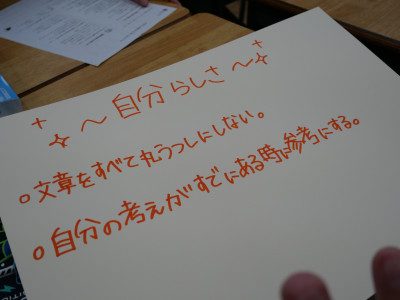 ～自分らしさ～
○文章をすべて丸うつしにしない。
○自分の考えがすでにある時は参考にする。